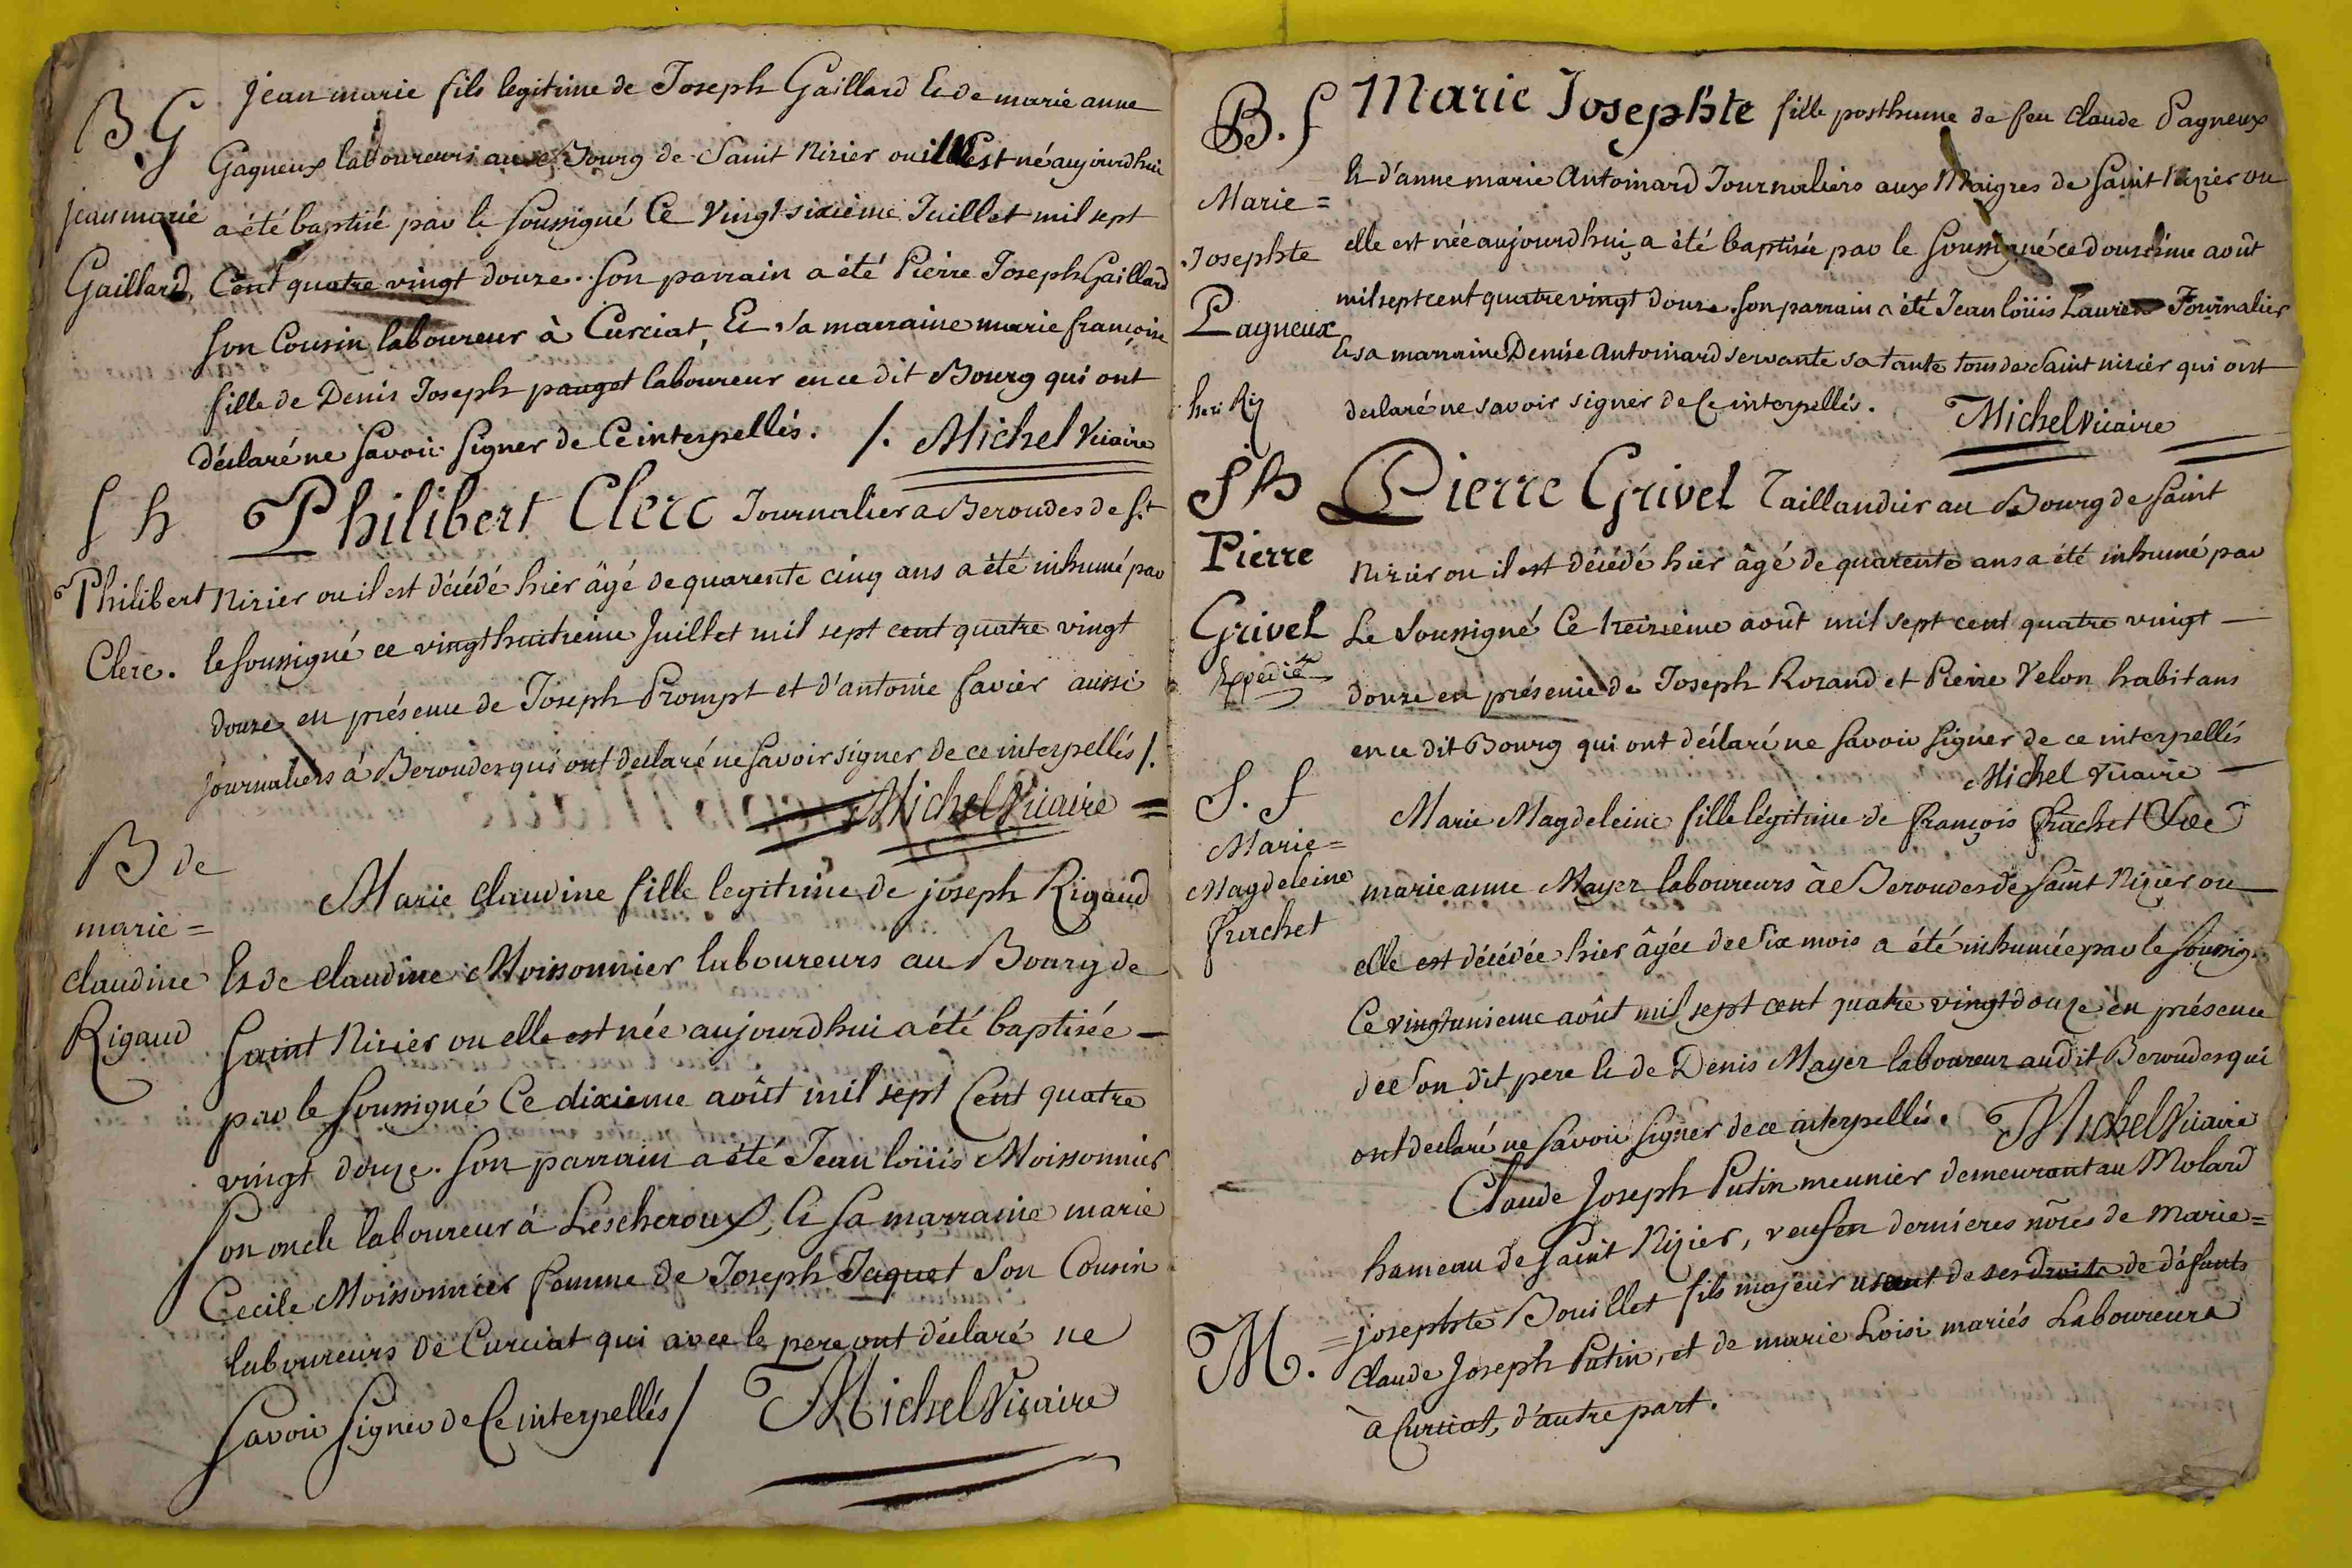 B.G
jean marie
Gaillard
jean marie fils legitime de Joseph Gaillard Et de marie anne
Gagneux laboureurs au Bourg de Saint Nizier ou il Est né aujourdhui
a été baptisé par le soussigné Ce vingt sixième Juillet mil sept
Cent quatre vingt douze. son parrain a été Pierre Joseph Gaillard
son Cousin laboureur à Curciat, Et sa marraine marie françoise
fille de Denis Joseph pauget laboureur en ce dit Bourg qui ont
déclaré ne savoir signer de Ce interpellés. /. Michel Vicaire
S h
Philibert
Clerc.
Philibert Clerc Journalier a Beroudes de St
Nizier ou il est décédé hier âgé de quarente cinq ans a été inhumé par
le soussigné ce vingt huitreime Juillet mil sept cent quatre vingt
douze en présence de Joseph Prompt et d'antoine favier aussi
journaliers à Beroudes qui ont declaré ne savoir signer de ce interpellés /.
Michel Vicaire =
B de
marie =
claudine
Rigaud
Marie claudine fille legitime de joseph Rigaud
Et de claudine Moissonnier laboureurs au Bourg de
Saint Nizier ou elle est née aujourdhui a été baptisée —
par le soussigné Ce dixieme août mil sept Cent quatre
vingt douze. son parrain a été Jean loüis Moissonnier
son oncle laboureur à Lescheroux, Et sa marraine marie
Cecile Moissonnier femme de Joseph Jaquet son Cousin
laboureurs de Curciat qui avec le pere ont déclaré ne
savoir signer de Ce interpellés / Michel Vicaire
B. f
Marie =
Josephte
Pagneux
Marie Josephte fille posthume de feu claude Pagneux
Et d'anne marie Antoinard Journaliers aux Maigres de saint Nizier ou
elle est née aujourdhui, a été baptisée par le soussigné ce douzième août
mil sept cent quatre vingt douze. son parrain a été Jean loüis Laurent Journalier
Et sa marraine Denise Antoinard servante sa tante tous de saint nizier qui ont
declaré ne savoir signer de Ce interpellés. Michel Vicaire
S h
Pierre
Grivel
Expedié
Pierre Grivel Taillandier au Bourg de saint
Nizier ou il est décédé hier âgé de quarente ans a été inhumé par
Le soussigné Ce treizieme août mil sept cent quatre vingt —
douze en présence de Joseph Rozand et Pierre Velon habitans
en ce dit Bourg qui ont déclaré ne savoir signer de ce interpellés
Michel Vicaire —
S. f
Marie =
Magdeleine
frachet
Marie Magdeleine fille légitime de françois frachet &de
marie anne Mayer laboureurs à Beroudes de saint Nizier ou —
elle est décédée hier âgée de six mois a été inhumée par le soussig.
Ce vingt unieme août mil sept cent quatre vingt douze en présence
de son dit pere Et de Denis Mayer laboureur audit Beroudes qui
ont declaré ne savoir signer de ce interpellés. Michel Vicaire
M.
Claude Joseph Putin meunier demeurant au Molard
hameau de saint Nizier, veuf en dernieres nôces de Marie =
= josephte Bouillet fils majeur usant de ses droits de défunts
Claude Joseph Putin, et de marie Loisi mariés Laboureurs
à Curciat, d'autre part.